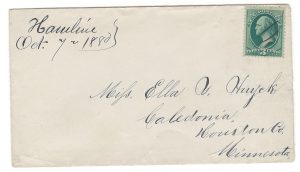 Hamline
Oct. 7 - 188
Miss. Ella V.
Caledonia,
Houston Co.
Minnesota